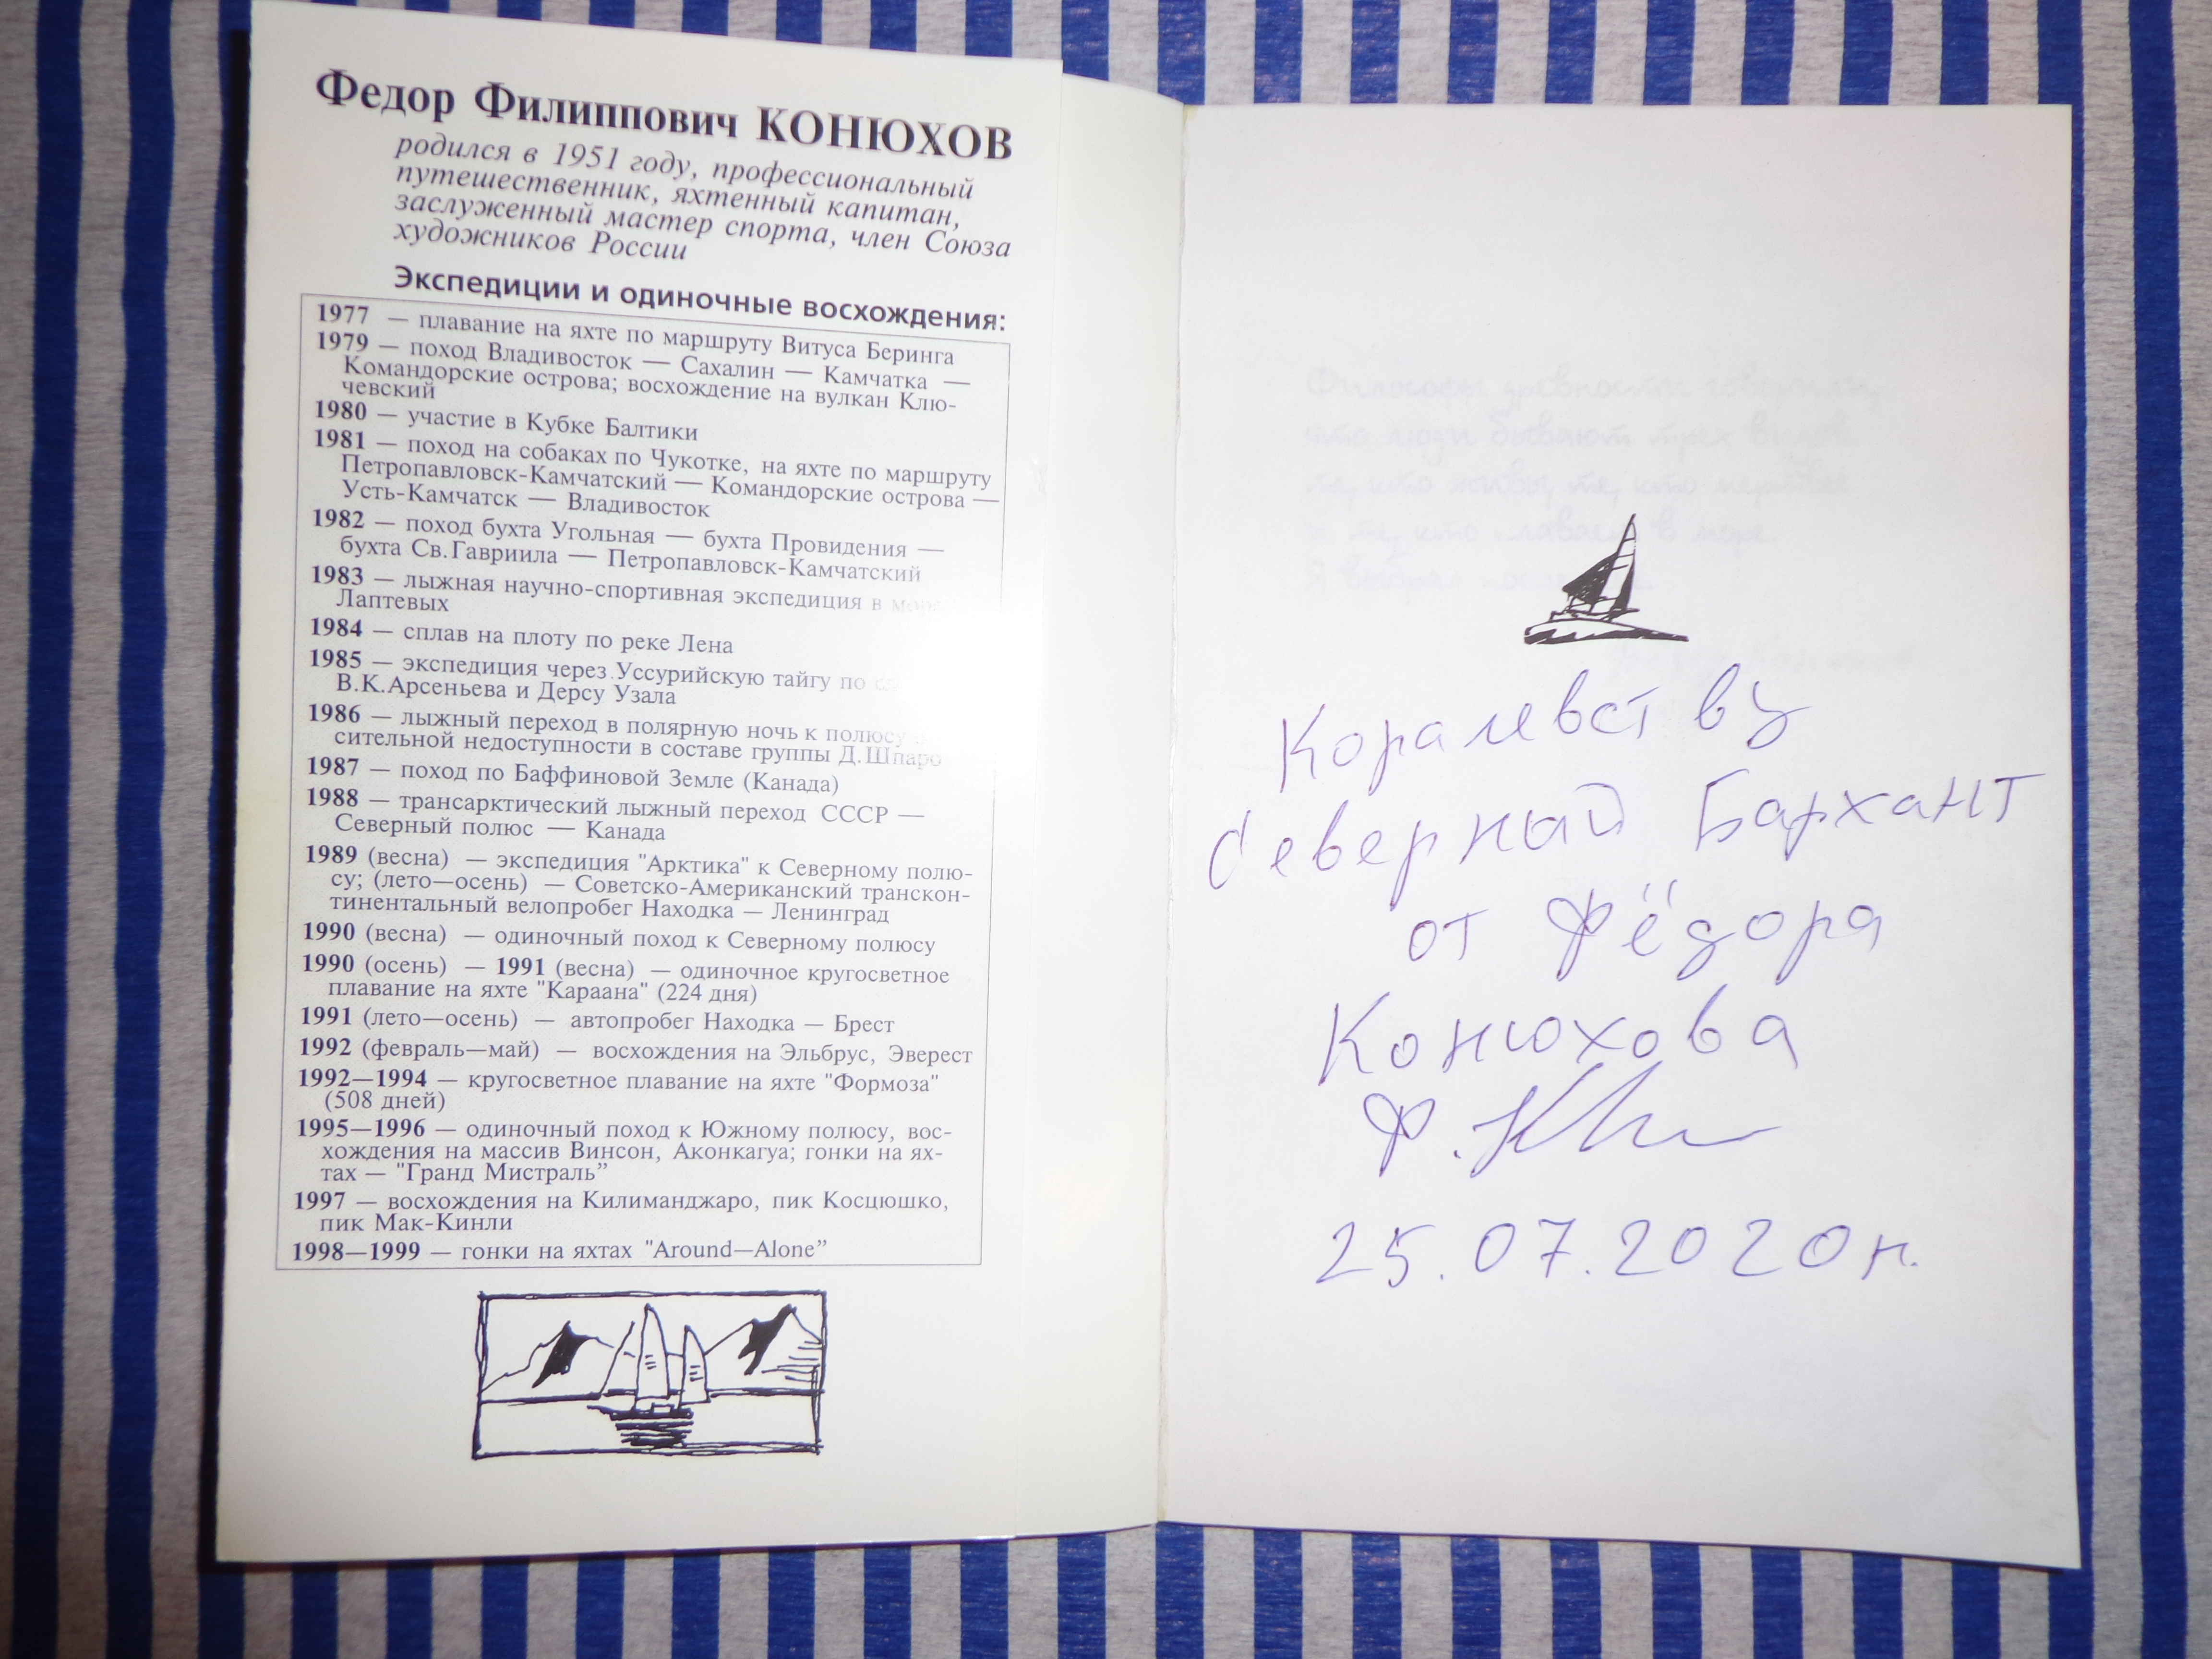 Федор Филиппович КОНЮХОВ
родился в 1951 году, профессиональный
путешественник, яхтенный капитан,
заслуженный мастер спорта, член Союза
художников России
Экспедиции и одиночные восхождения:
1977 — плавание на яхте по маршруту Витуса Беринга
1979 — поход Владивосток — Сахалин — Камчатка —
Командорские острова; восхождение на вулкан Клю-
чевский
1980 — участие в Кубке Балтики
1981 — поход на собаках по Чукотке, на яхте по маршруту
Петропавловск-Камчатский — Командорские острова —
Усть-Камчатск — Владивосток
1982 — поход бухта Угольная — бухта Провидения —
бухта Св.Гавриила — Петропавловск-Камчатский
1983 — лыжная научно-спортивная экспедиция в море
Лаптевых
1984 — сплав на плоту по реке Лена
1985 — экспедиция через Уссурийскую тайгу по
В.К.Арсеньева и Дерсу Узала
1986 — лыжный переход в полярную ночь к полюсу
сительной недоступности в составе группы Д.Шпаро
1987 — поход по Баффиновой Земле (Канада)
1988 — трансарктический лыжный переход СССР —
Северный полюс — Канада
1989 (весна) — экспедиция "Арктика" к Северному полю-
су; (лето—осень) — Советско-Американский транскон-
тинентальный велопробег Находка — Ленинград
1990 (весна) — одиночный поход к Северному полюсу
1990 (осень) — 1991 (весна) — одиночное кругосветное
плавание на яхте "Караана" (224 дня)
1991 (лето—осень) — автопробег Находка — Брест
1992 (февраль—май) — восхождения на Эльбрус, Эверест
1992—1994 — кругосветное плавание на яхте "Формоза"
(508 дней)
1995—1996 — одиночный поход к Южному полюсу, вос-
хождения на массив Винсон, Аконкагуа; гонки на ях-
тах — "Гранд Мистраль”
1997 — восхождения на Килиманджаро, пик Косцюшко,
пик Мак-Кинли
1998—1999 — гонки на яхтах "Around—Alone”
Философы древности говорили,
что люди бывают трех видов:
те, кто живы, те, кто мертвы
и те, кто плавает в море.
Я выбрал
Федор Конюхов
Коралевству
Северный Бархант
от Фёдора
Конюхова
Ф. К
25.07.2020г.